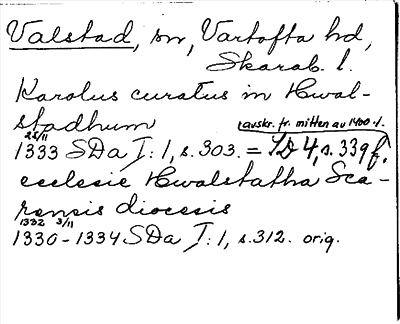 Valstad, sn, Vartofta hd,
Skarab. l.
Karolus curatus in Hwal-
stadhum
(avskr. fr. mitten av 1400-t.
25/11
1333 SDa I: 1, s. 303. = SD 4, s. 339 f.
ecclesie Hwalstatha Sca-
rensis diocesis
1332 3/11
1330-1334 SDa I: 1, s. 312. orig.